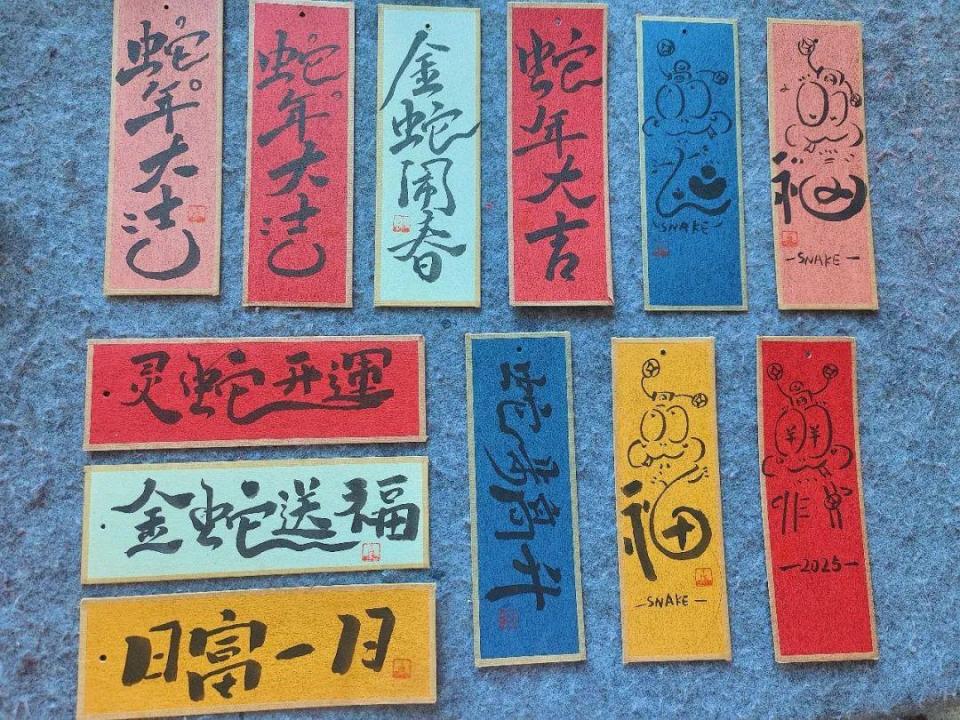 蛇年大吉
蛇年大吉
金蛇闹春
蛇年大吉
SNAKE
福
-SNAKE-
灵蛇开運
金蛇送福
日富一日
福
-SNAKE-
-2025-